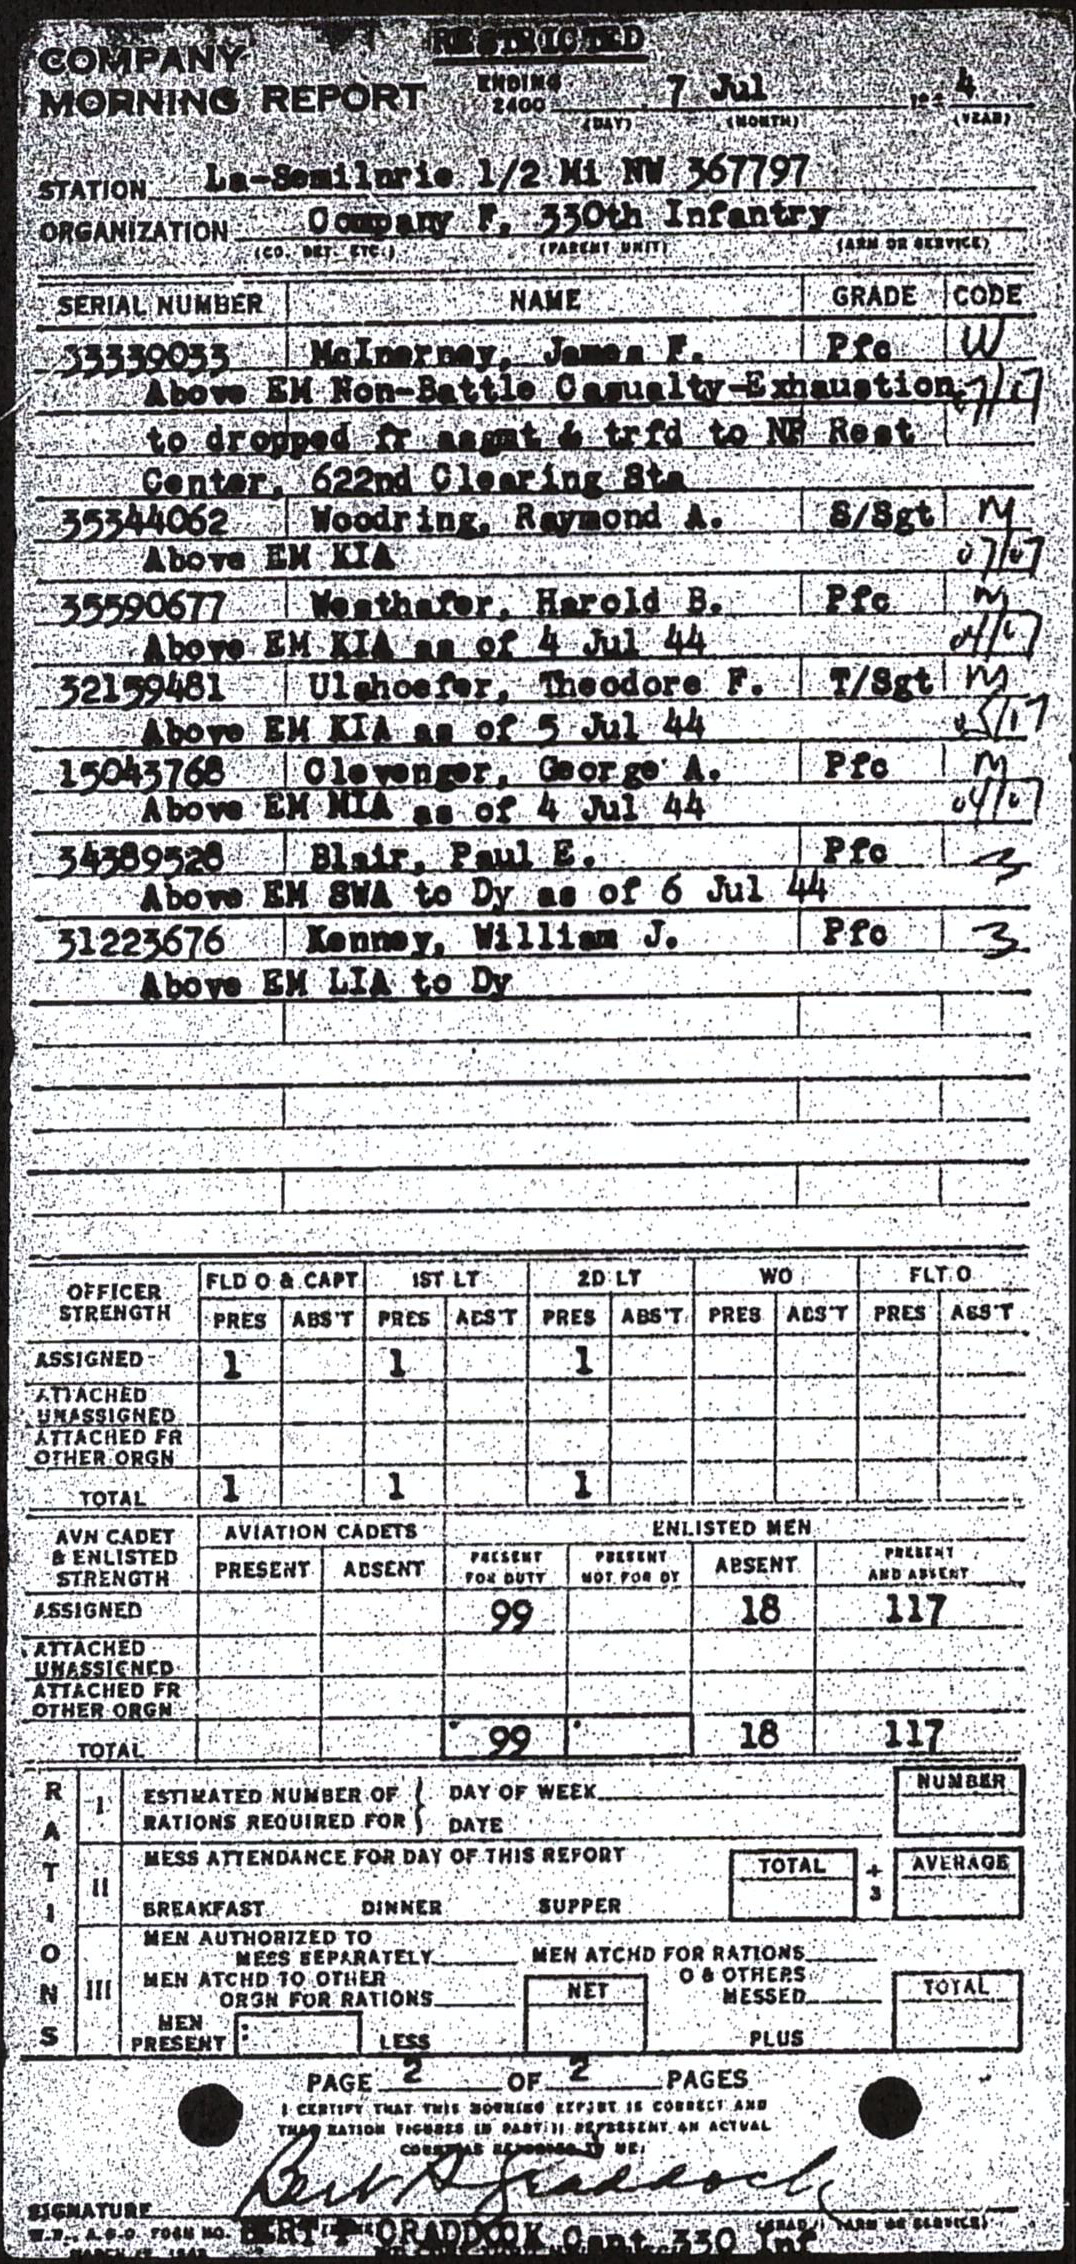 RESTRICTED
COMPANY
MORNING REPORT
ENDING 2400 7 Jul 194 4
(DAY) (MONTH) (YEAR)
STATION La-Semilnrie 1/2 Mi NW 367797
ORGANIZATION Company F, 330th Infantry
(CO. DET. ETC.) (PARENT UNIT) (ARM OR SERVICE)
SERIAL NUMBER NAME GRADE CODE
33339033 McInerney, James F. Pfc W
Above EM Non-Battle Casualty-Exhaustion 07/07
to dropped fr asgmt & trfd to NP Rest
Center, 622nd Clearing Sta
35344062 Woodring, Raymond A. S/Sgt M
Above EM KIA 07/07
35590677 Westhafer, Harold B. Pfc M
Above EM KIA as of 4 Jul 44 04/07
32159481 Ulshoefer, Theodore F. T/Sgt M
Above EM KIA as of 5 Jul 44 05/07
15043768 Clevenger, George A. Pfc M
Above EM MIA as of 4 Jul 44 04/07
34389528 Blair, Paul E. Pfc 3
Above EM SWA to Dy as of 6 Jul 44
31223676 Kenney, William J. Pfc 3
Above EM LIA to Dy
OFFICER STRENGTH FLD O & CAPT 1ST LT 2D LT WO FLT O
PRES ABS'T PRES ABS'T PRES ABS'T PRES ABS'T PRES ABS'T
ASSIGNED 1 1 1
ATTACHED UNASSIGNED
ATTACHED FR OTHER ORGN
TOTAL 1 1 1
AVN CADET & ENLISTED STRENGTH AVIATION CADETS ENLISTED MEN
PRESENT ABSENT PRESENT FOR DUTY PRESENT NOT FOR DY ABSENT PRESENT AND ABSENT
ASSIGNED 99 18 117
ATTACHED UNASSIGNED
ATTACHED FR OTHER ORGN
TOTAL 99 18 117
RATIONS
I ESTIMATED NUMBER OF RATIONS REQUIRED FOR DAY OF WEEK NUMBER
DATE
II MESS ATTENDANCE FOR DAY OF THIS REPORT TOTAL ÷ 3 AVERAGE
BREAKFAST DINNER SUPPER
III MEN AUTHORIZED TO MESS SEPARATELY MEN ATCHD FOR RATIONS
MEN ATCHD TO OTHER ORGN FOR RATIONS NET O & OTHERS MESSED TOTAL
MEN PRESENT LESS PLUS
PAGE 2 OF 2 PAGES
I CERTIFY THAT THIS MORNING REPORT IS CORRECT AND
THAT RATION FIGURES IN PART II REPRESENT AN ACTUAL
COUNT AS REPORTED TO ME.
SIGNATURE
W.D., A.G.O. FORM NO. (GRADE) (ARM OR SERVICE)
CRADDOCK Capt 330 Inf